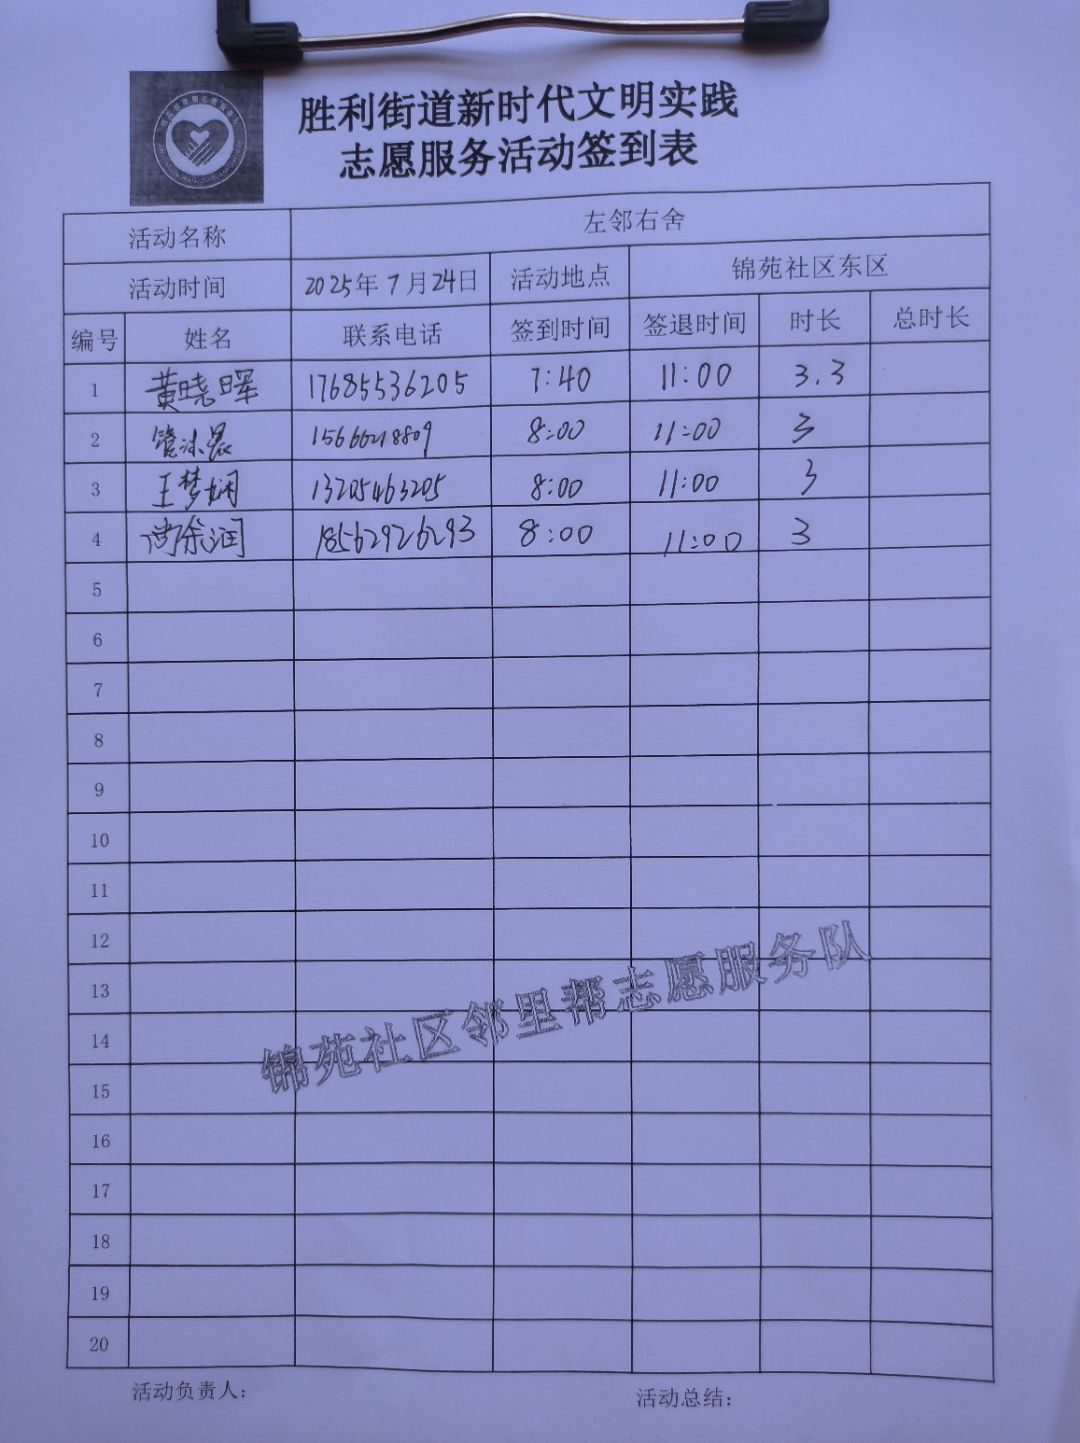 胜利街道新时代文明实践
志愿服务活动签到表
活动名称 左邻右舍
活动时间 2025年7月24日 活动地点 锦苑社区东区
编号 姓名 联系电话 签到时间 签退时间 时长 总时长
1 黄晓晖 17685536205 7:40 11:00 3.3
2 管沐晨 15666218809 8:00 11:00 3
3 王梦娴 13205463205 8:00 11:00 3
4 尚余润 18562926293 8:00 11:00 3
5
6
7
8
9
10
11
12
13
14
15
16
17
18
19
20
锦苑社区邻里帮志愿服务队
活动负责人: 活动总结: